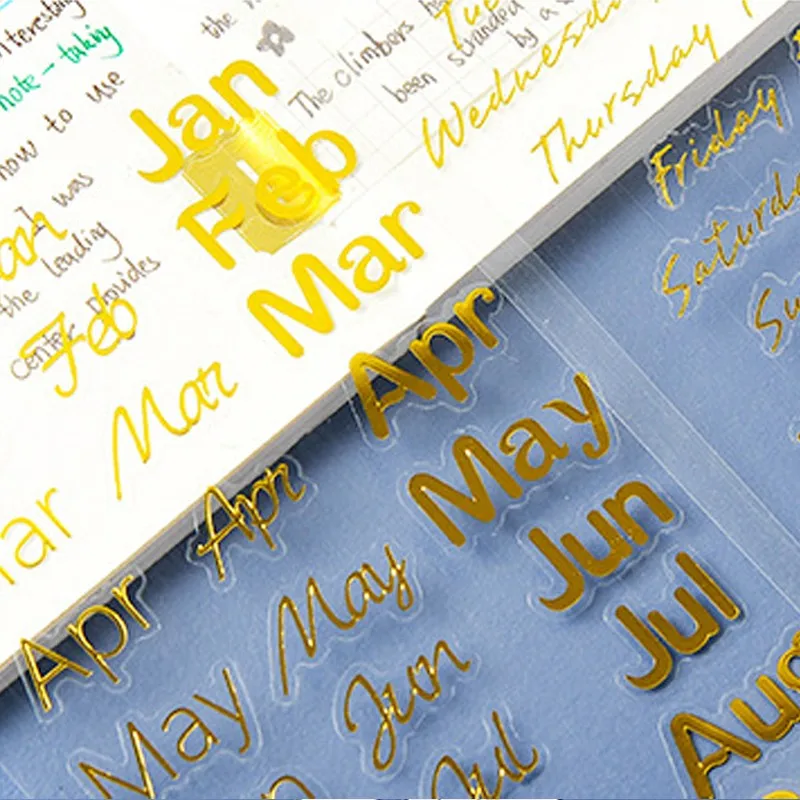 note-taking
how to use
was
the leading
center provides
the
The climbers
been stranded
by a
Jan
Feb
Mar
Apr
May
Jun
Jul
Aug
Feb
Mar
Apr
May
Jun
Jul
Apr
May
Wednesday
Thursday
Friday